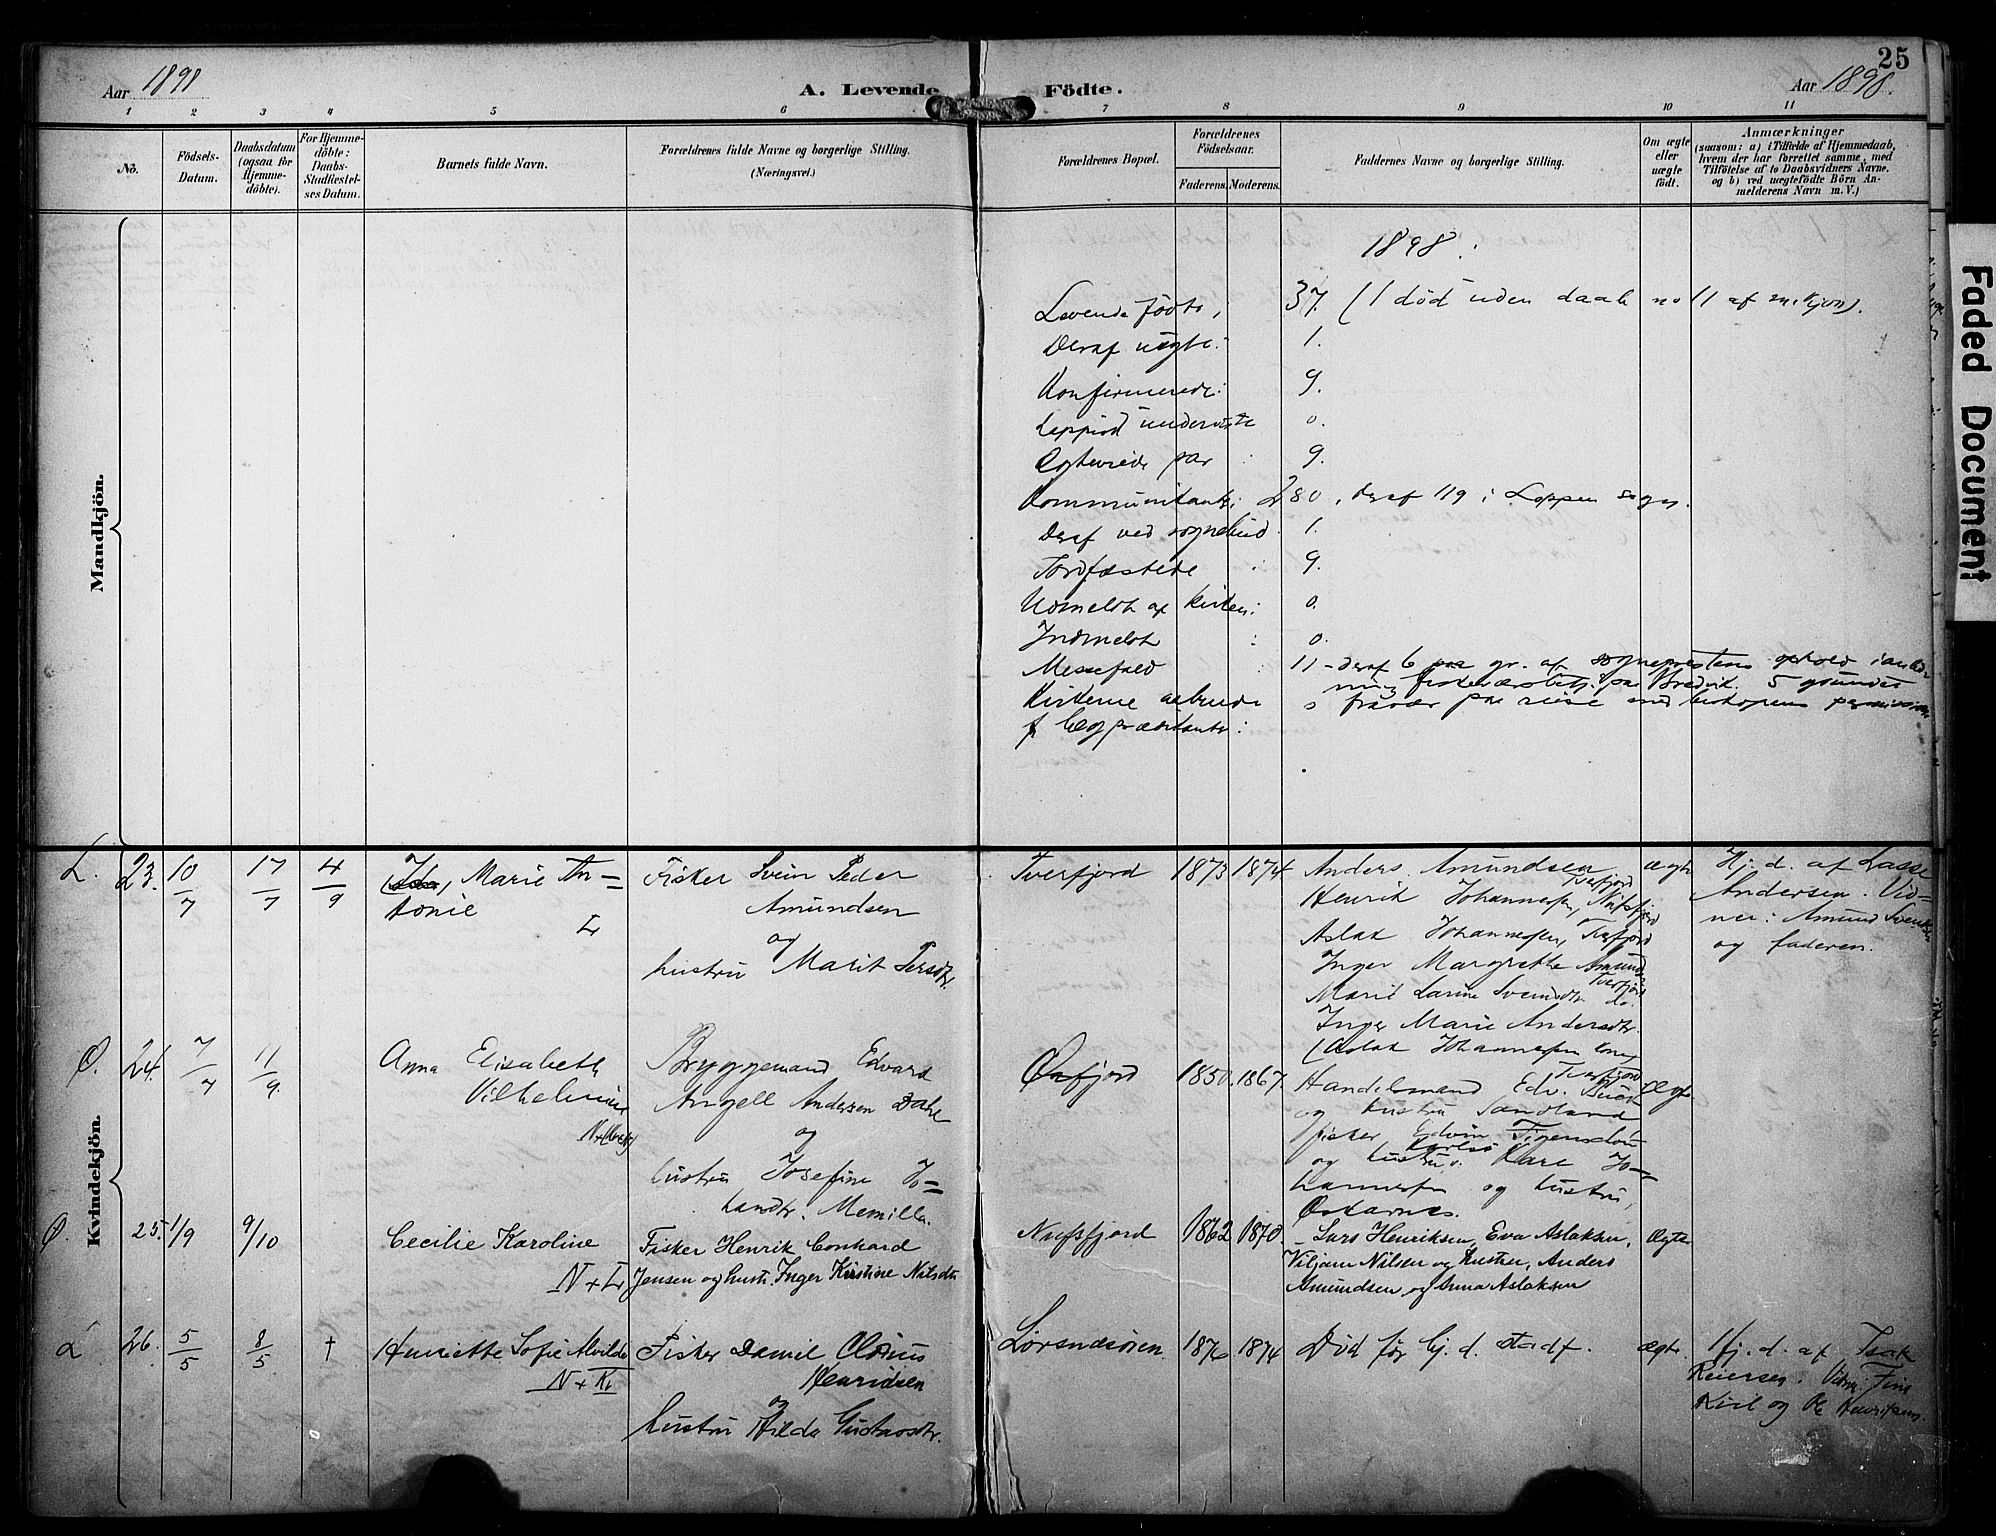 25
Aar 1898
A. Levende Födte.
Aar 1898.
1 2 3 4 5 6 7 8 9 10 11
No.
Födsels-Datum.
Daabsdatum (ogsaa for Hjemme-döbte).
For Hjemme-döbte: Daabs-Stadfæstel-ses Datum.
Barnets fulde Navn.
Forældrenes fulde Navne og borgerlige Stilling.
(Næringsvei.)
Forældrenes Bopæl.
Forældrenes Födselsaar.
Faderens. Moderens.
Faddernes Navne og borgerlige Stilling.
Om ægte eller uægte födt.
Anmærkninger
(saasom: a) i Tilfælde af Hjemmedaab,
hvem der har forrettet samme, med
Tilföielse af to Daabsvidners Navne.
og b) ved uægtefödte Börn An-
melderens Navn m. V.)
Mandkjön.
1898:
Levende fødte, 37. (1 død uden daab no 11 af m.kjøn).
Deraf uægte: 1.
Konfirmerede: 9.
Lappisk underviste 0.
Egteviede par : 9.
Kommunikanter: 280, deraf 119 i Loppen sogn.
Deraf ved sognebud 1.
Jordfæstede : 9.
Udmeldt af kirken: 0.
Indmeldt : 0.
Messefald : 11 - deraf 6 paa gr. af sogneprestens ophold i anled-
ning 5 grundet
Kirkerne 0 fravær paa reise med biskopens permission
Faded Document
Kvindekjön.
L. 23. 10/7 17/7 4/9 Ida, Marie An=
tonie
L
Fisker Svein Peder
Amundsen
og
hustru Marit Persdtr.
Tverfjord 1873 1874
Anders Amundsen Tverfjord
Henrik Johannessen, Nufsfjord
Aslak Johannessen, Tverfjord
Inger Margrethe Amunds
Tverfjord
Marit Larine Svendsdtr do.
Inger Marie Andersdtr.
(Aslak Johannessen kone
Tverfjord
ægte
Hj. d. af Lasse
Andersen. Vid=
ner: Amund Svendsen
og faderen.
Ø. 24. 7/7 11/9 Anna Elisabeth
Vilhelmine
Bryggemand Edvard
Angell Andersen Dahl
og
hustru Josefine Jo=
handtr. Memilla.
Øxfjord 1850. 1867.
Handelsmand Edv. Buck
og hustru Sandland
fisker Edvin
og hustru Kare Jo=
hannessen og hustru,
Øskarnes.
Ægte
Ø. 25. 1/9 9/10 Cecilie Karoline
N + L
Fisker Henrik Conhard
Jensen og hustr. Inger Kirstine Nilsdtr
Nufsfjord 1862 1870.
Lars Henriksen, Eva Aslaksen,
Viljam Nilsen og hustru, Anders
Amundsen og Anna Aslaksen
Ægte
L 26. 5/5 8/5 † Henriette Sofie Alvilde
N + K.
Fisker Daniel Clonius
Henriksen
og
hustru Hilda Gustavsdtr.
1876 1874
Død før hj. d. stadf.
ægte.
Hj. d. af Isak
Reiersen. Vidn. Finn
Kiil og Ole Henriksen.